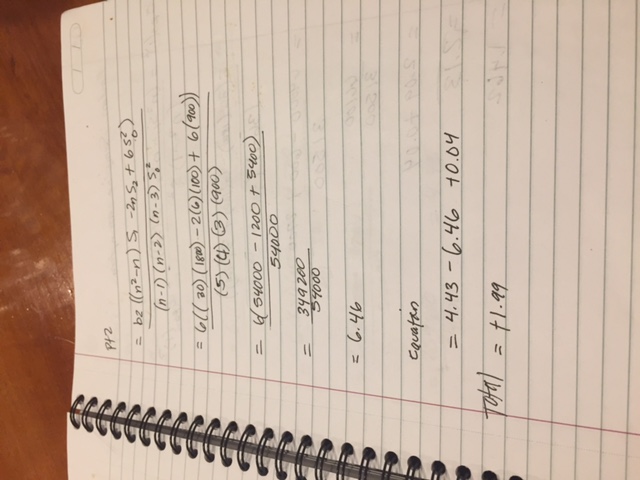 Pt 2
= b2 ((n²-n) S₁ - 2n S₂ + 6 S₀²)
(n-1) (n-2) (n-3) S₀²
= 6((30)(1800) - 2(6)(100) + 6(900))
(5) (4) (3) (900)
= 6(54000 - 1200 + 5400)
54000
= 349200
54000
= 6.46
Equation
= 4.43 - 6.46 +0.04
Total = +1.99